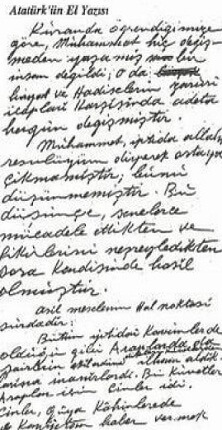 Atatürk'ün El Yazısı
Kuranda öğrendiğimize
göre, Muhammet hiç değiş-
meden yaşamış bir
insan değildi; o da
hayat ve Hadiselerin zaruri
icapları karşısında adeta
hergün değişmiştir.
Muhammet, iptida allah
resulüyüm diyerek ortaya
çıkmamıştır; bunu
düşünmemiştir. Bu
düşünce, senelerce
mücadele ettikten ve
fikirlerini neşreyledikten
sora kendisinde hasıl
olmuştur.
asıl meselenin Hal noktası
şuradadır:
Bütün iptidai kavimlerde
olduğu gibi Araplarda da
şairlerin allaha
larına inanırlardı. Bu Kuvvetler
Araplar için Cinler idi.
Cinler, güya Kâhinlerede
haber vermek